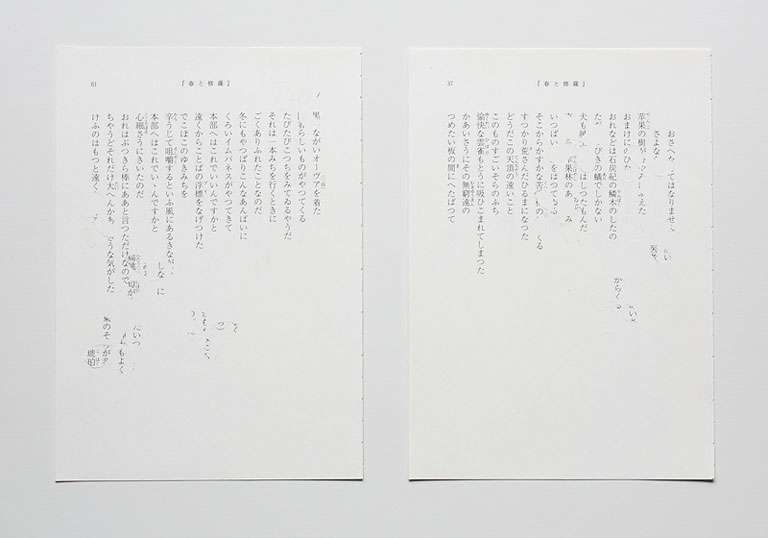 37
『春と修羅』
おさへ てはなりませ
さよな
苹果の樹が え た
おまけに のひた
おれなどは石炭紀の鱗木のしたの
た びきの蟻でしかない
犬も はしつたもんだ
果林のあ み
いつぱい をはつてゐる
そこからかすかな苦 の くる
すつかり荒さんだひるまになつた
どうだこの天頂の遠いこと
このものすごいそらのふち
愉快な雲雀もとうに吸ひこまれてしまつた
かあいさうにその無窮遠の
つめたい板の間にへたばつて
から
61
『春と修羅』
黒 ながいオーヴアを着た
らしいものがやつてくる
たびたびこつちをみてゐるやうだ
それは一本みちを行くときに
ごくありふれたことなのだ
冬にもやつぱりこんなあんばいに
くろいイムバネスがやつてきて
本部へはこれでいいんですかと
遠くからことばの浮標をなげつけた
でこぼこのゆきみちを
辛うじて咀嚼するといふ風にあるきな
本部へはこれでいゝんですかと
心細さうにきいたのだ
おれはぶつきら棒にああと言つただけなので
ちやうどそれだけ大へんかあ うな気がした
けふのはもつと遠く
しな に
もよく
のそ が
琥珀